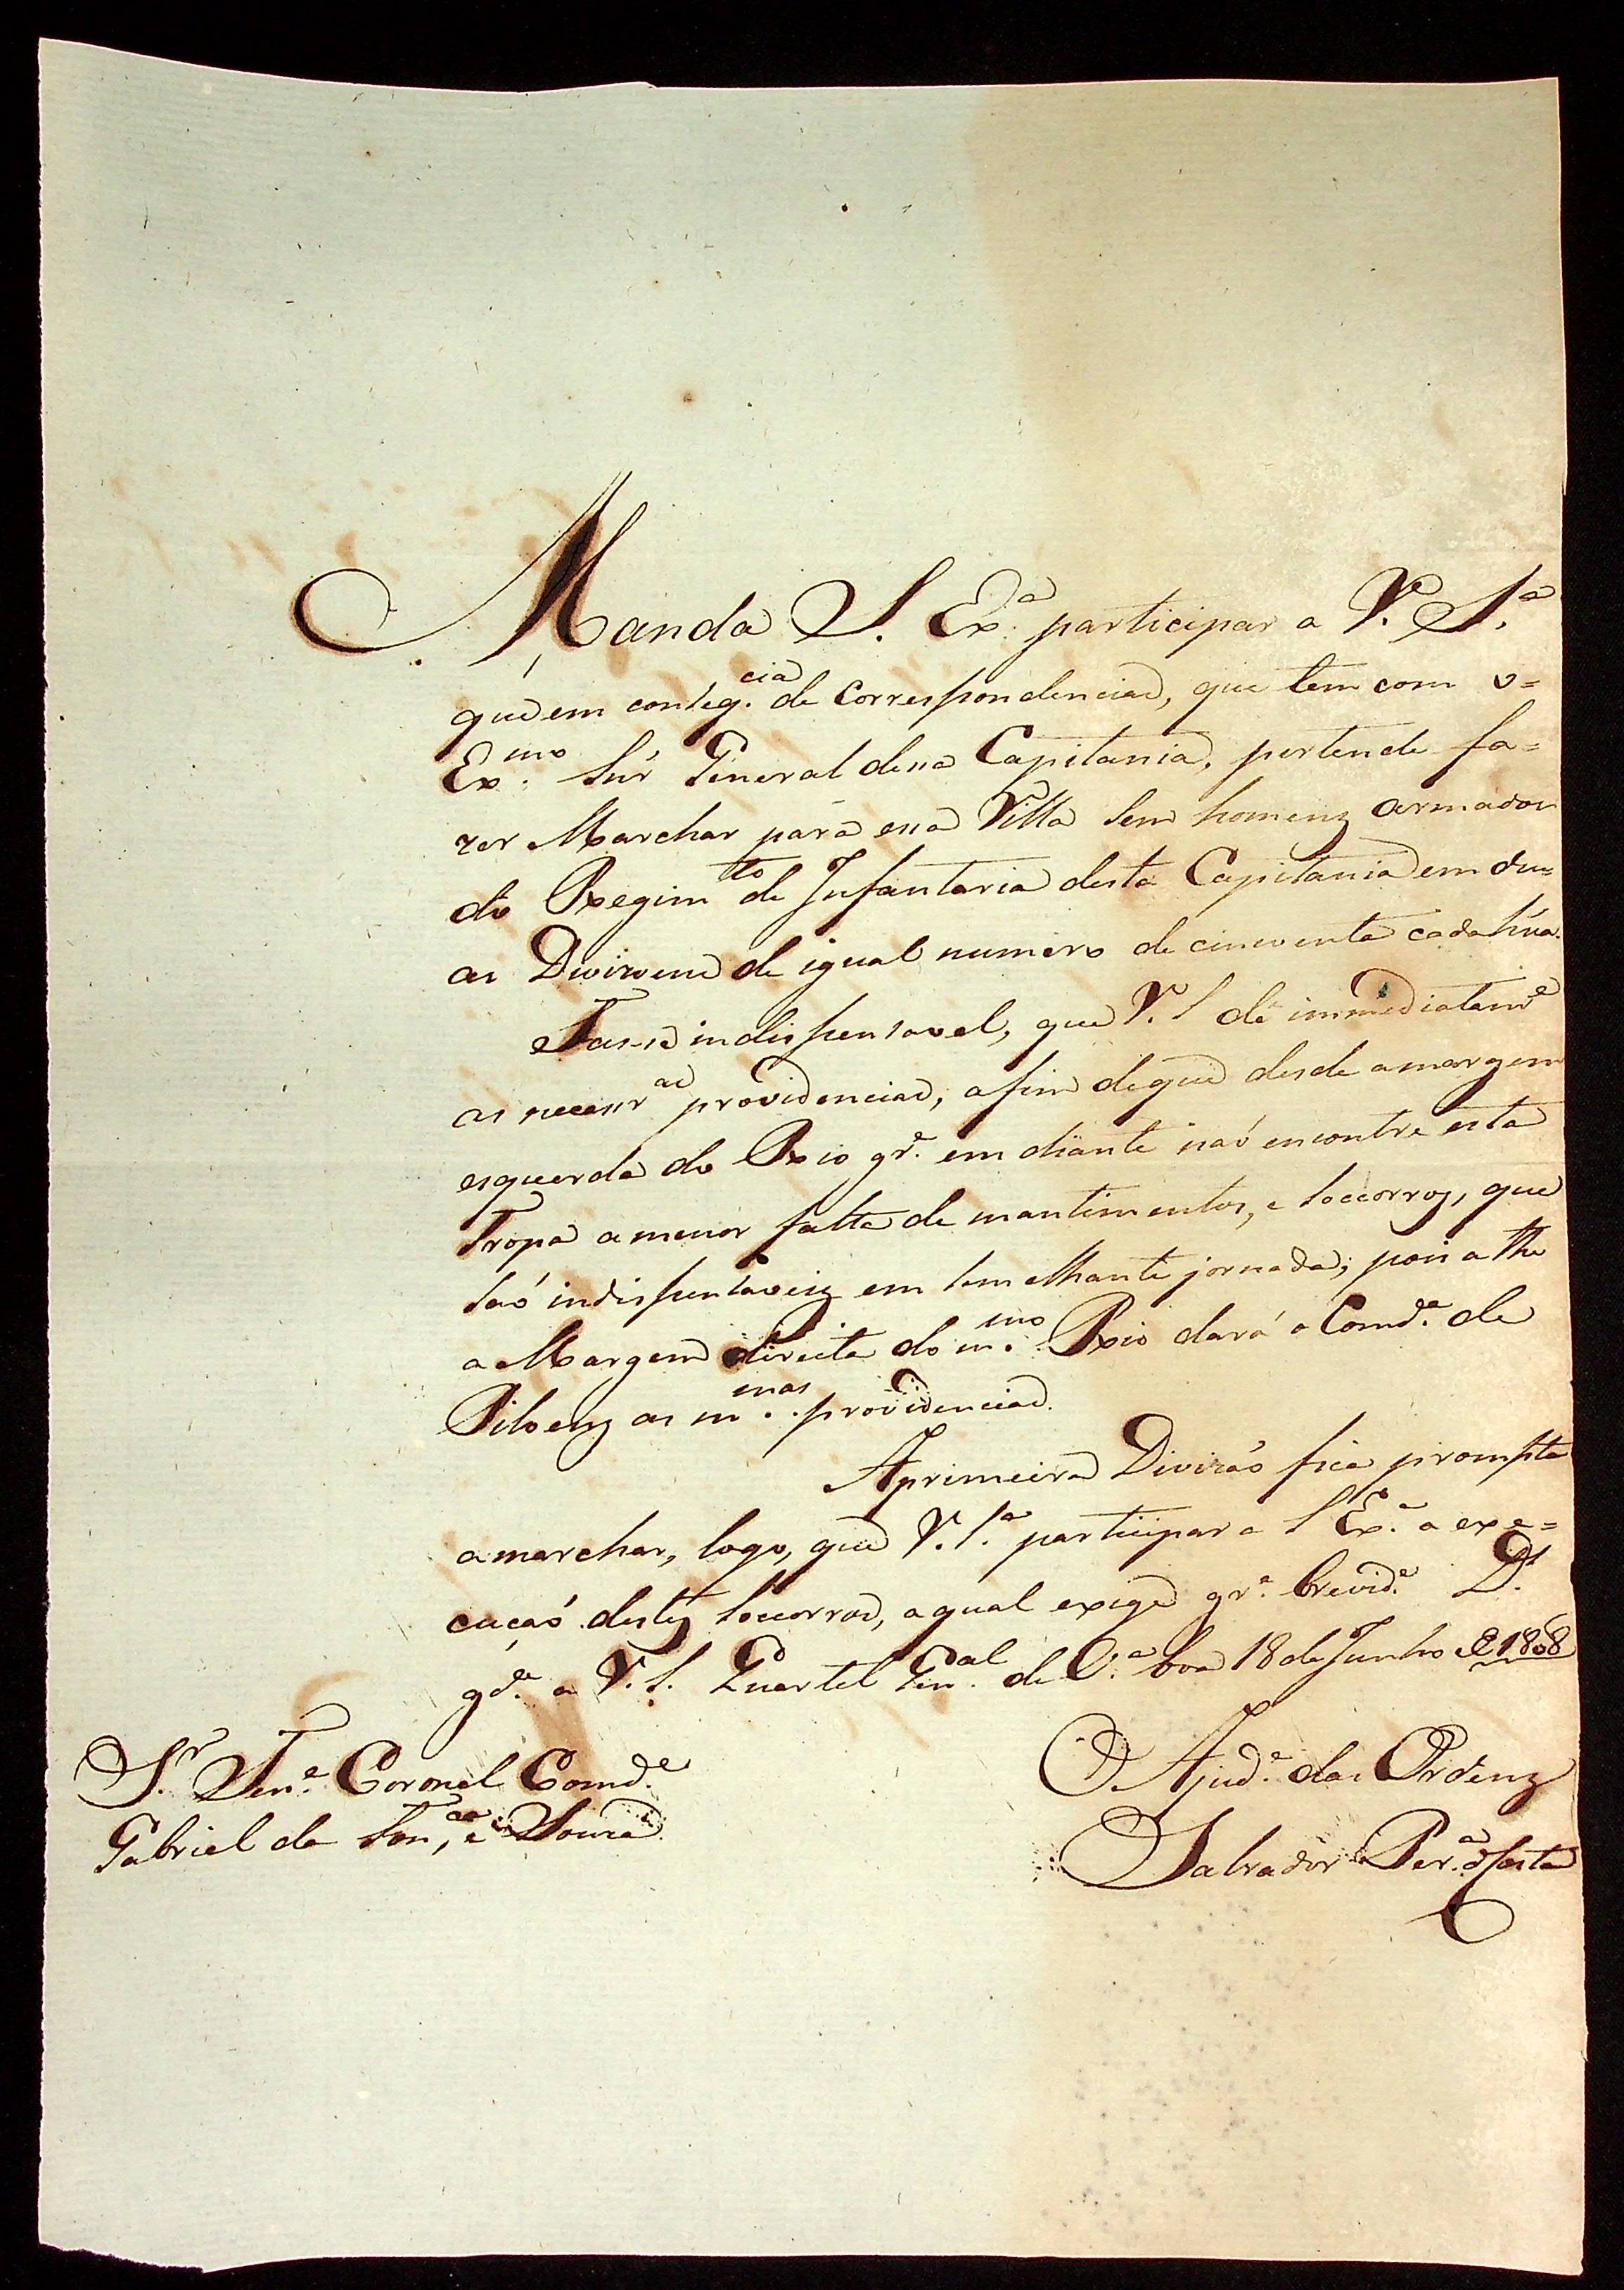 Manda S. Ex.ª participar a V. S.ª
que em conseq.cia de correspondencias, que tem com o=
Ex.mo Snr̃ General dessa Capitania, pertende fa=
zer Marchar para essa Villa Sem homens armados
do Regim.to de Infantaria desta Capitania em du=
as Divizoens de igual numero de cincoenta cada hũa.
Fas-se indispensavel, que V. S dê immediatam.e
as necessr.as providencias, afim deque desde amargem
esquerda do Rio gr.e em diante naó encontre esta
Tropa amenor falta de mantimentos, e soccorros, que
saó indispensaveis em semelhante jornada; pois athe
a Margem direita do m.mo Rio dará o Comd.e de
Piloens as m.mas providencias.
Aprimeira Divizaó fica prompta
amarchar, logo, que V. S.ª participar a S Ex.ª a exe=
cuçaó destes soccorros, aqual exige gr.e brevid.e D.s
gd.e a V. S. Quartel Gen.al de V.ª boa 18 de Junho de 1808
O Ajud.e das Ordens
Salvador Per.ª da Costa
S.r Ten.e Coronel Comd.e
Gabriel da Fon.ca e Souza